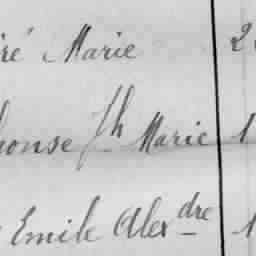 ré Marie 2
honse Jh Marie 1
Emile Alexdre 1